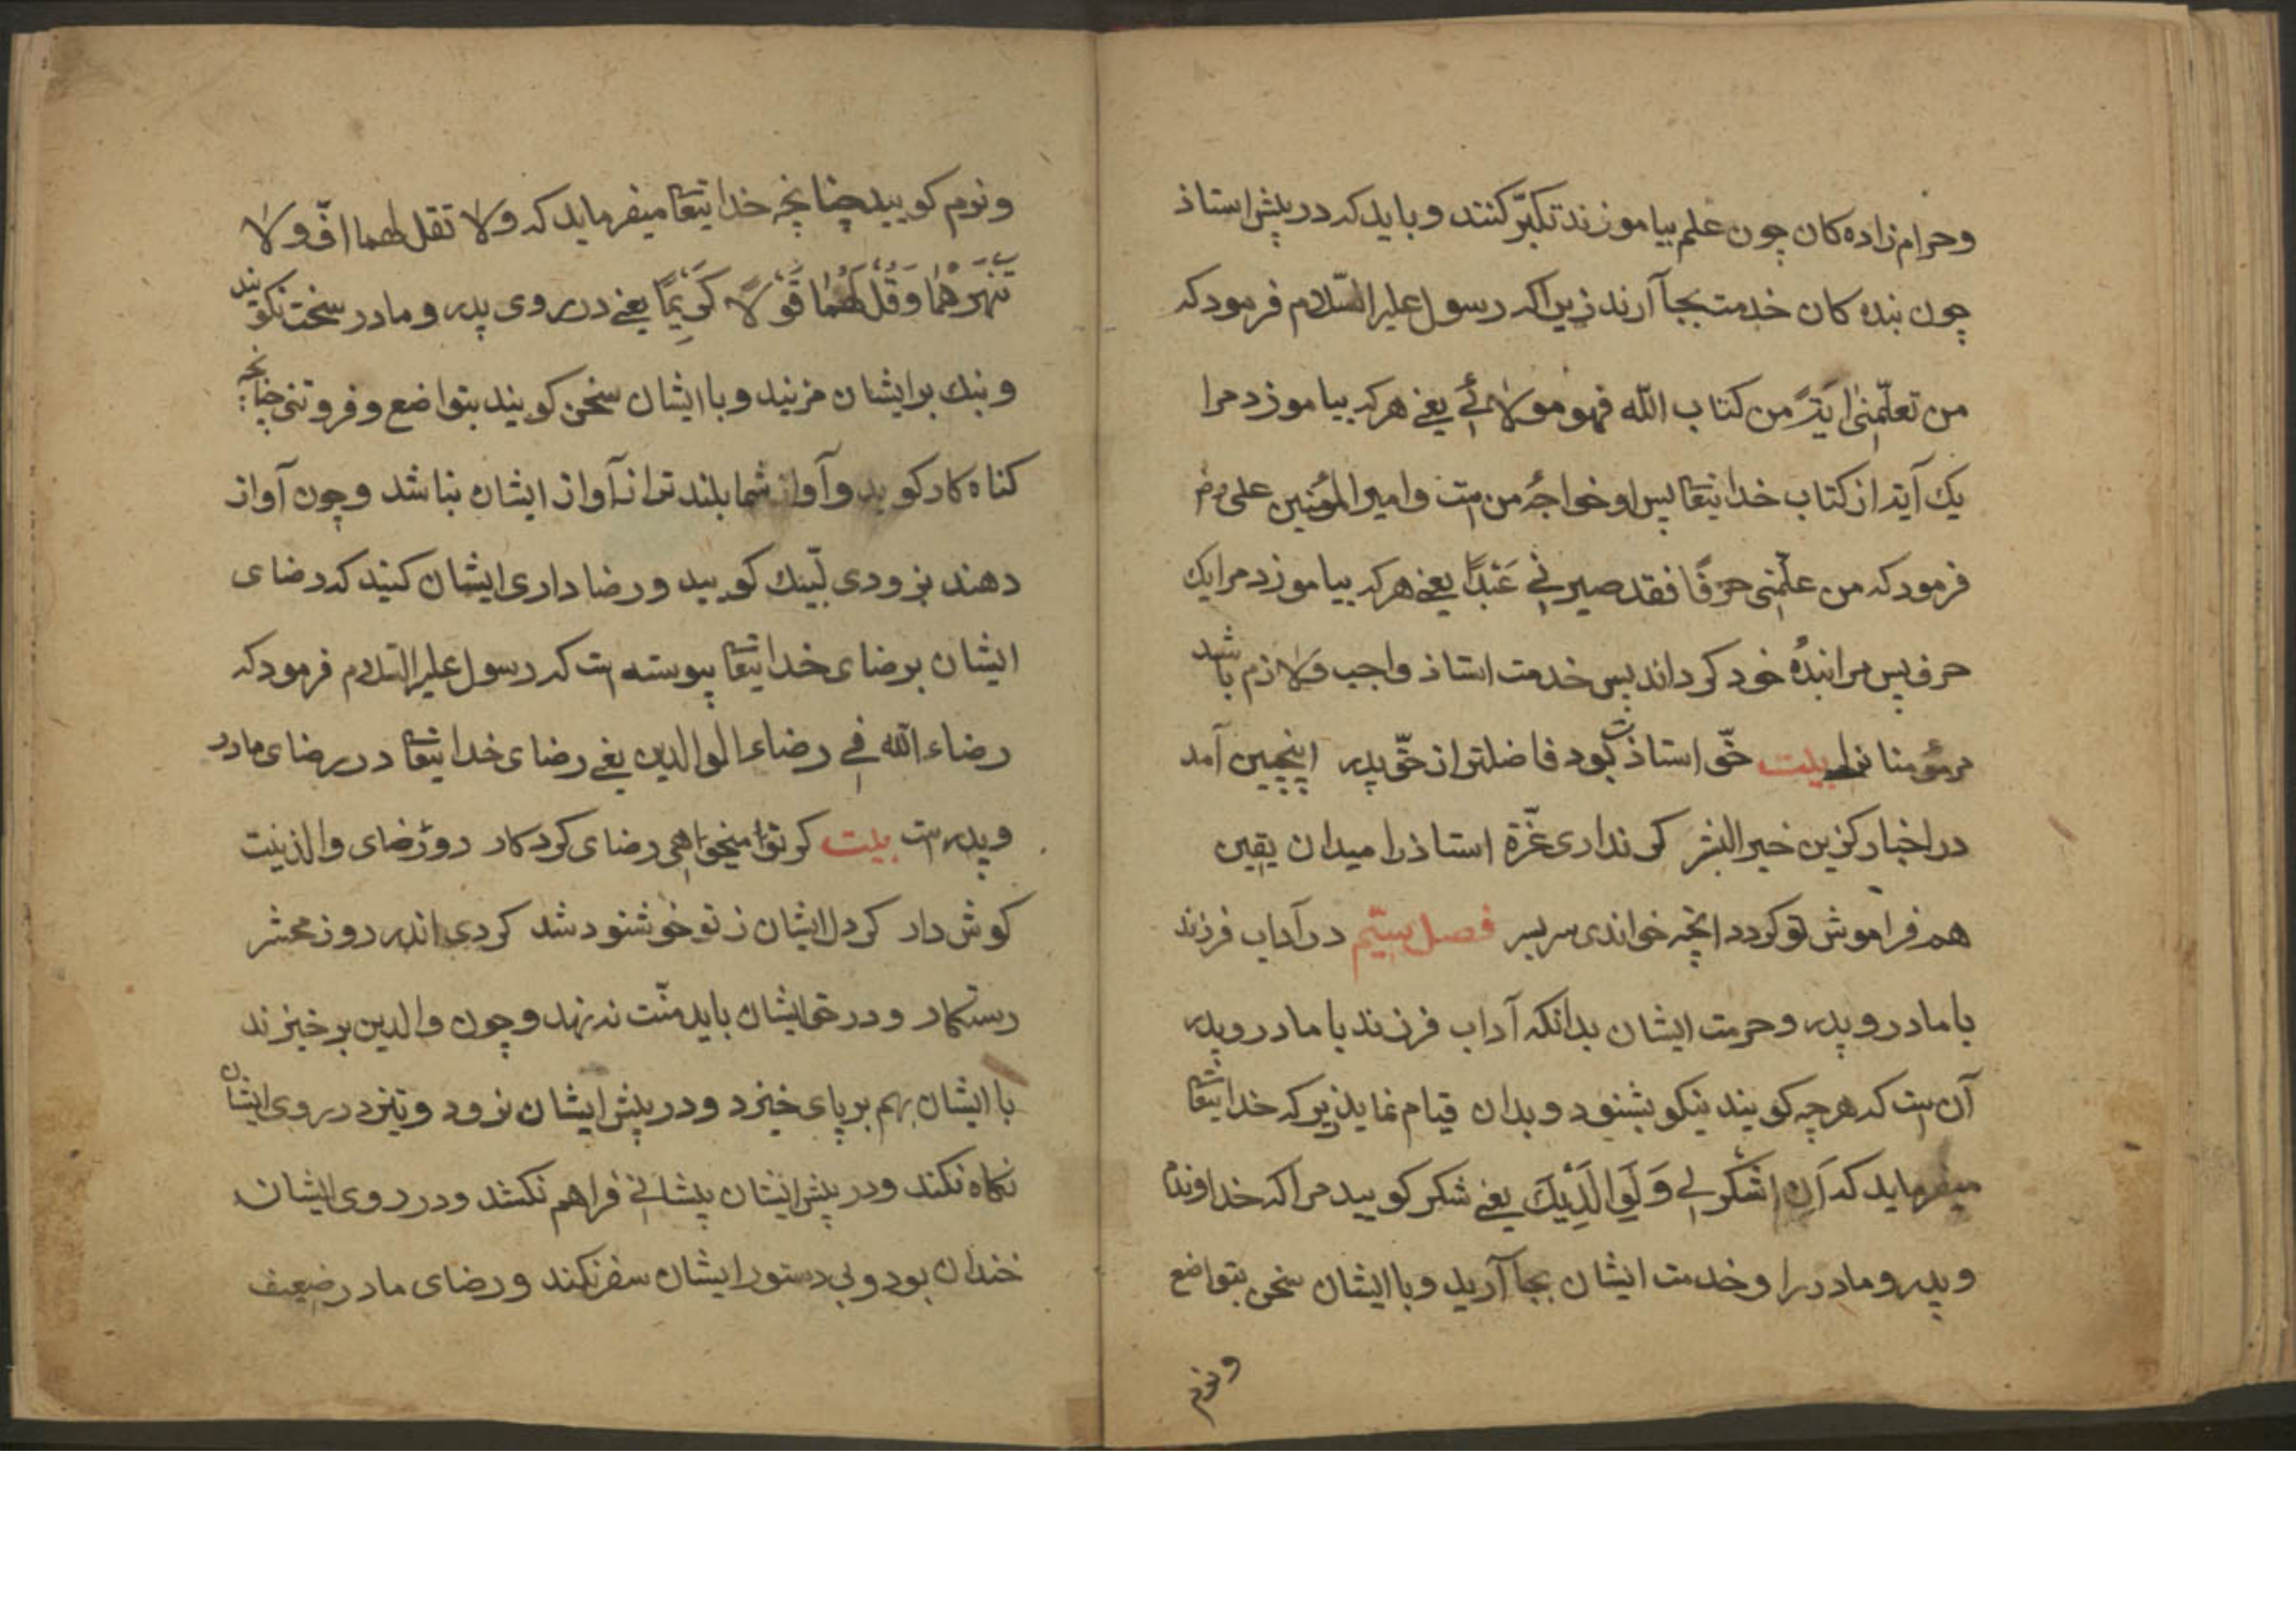 وحرام زاده کان چون علم بیاموزند تکبّر کنند و باید که در پیش استاذ
چون بنده کان خدمت بجا آرند زیرا که رسول علیه السّلام فرمود که
من تعلّمنی ایة من کتاب الله فهو مولائی یعنی هر که بیاموزد مرا
یک آیة از کتاب خدایتعا پس او خواجهٔ من ست وامیر المؤمنین علی رض
فرمود که من علّمنی حرفًا فقد صیرنی عَبْدًا یعنی هر که بیاموزد مرا یک
حرف پس مرا بندهٔ خود کرداند پس خدمت استاذ واجب ولازم باشد
مر مؤمنانرا بیت حقّ استاذت بود فاضلتر از حقّ پدر اینچنین آمد
در اخبار کزین خیر البشر کر نداری عزّة استاذ را میدان یقین
هم فراموش تو کردد انچه خواندی سربسر فصل سیّم در آداب فرزند
با مادر و پدر و حرمت ایشان بدانکه آداب فرزند با مادر و پدر
آن ست که هرچه کویند نیکو بشنود و بدان قیام نماید زیر که خدایتعا
میفرماید که اَنِ اشْکُرْ لِی وَلِوَالِدَیْکَ یعنی شکر کویید مرا که خداوندم
و پدر و مادر را و خدمت ایشان بجا آرید و با ایشان سخن بتواضع
ونرم
ونرم کویید چنانچه خدایتعا میفرماید که ولا تقل لهما افّ ولا
تَنْهَرْهُمَا وَقُلْ لَهُمَا قَوْلًا کَرِیمًا یعنی در روی پدر و مادر سخت نکویند
و بنک بر ایشان مزنید و با ایشان سخن کویند بتواضع و فروتنی چنانچه
کناه کار کوید و آواز شما بلندتر از آواز ایشان نباشد و چون آواز
دهند بزودی لبّیک کویید و رضا داری ایشان کنید که رضای
ایشان برضای خدایتعا پیوسته ست که رسول علیه السّلام فرمود که
رضاء الله فی رضاء الوالدین یعنی رضای خدایتعا در رضای مادر
و پدر ست بیت کر تو میخواهی رضای کردکار رو رضای والدینت
کوش دار کر دل ایشان ز تو خوشنود شد کردی اندر روز محشر
رستکار و در حق ایشان باید منّت نه نهد و چون والدین برخیزند
با ایشان بهم بر پای خیزد و در پیش ایشان نرود و تیز در روی ایشان
نکاه نکند و در پیش ایشان پیشانی فراهم نکشد و در روی ایشان
خندان بود و بی دستور ایشان سفر نکند و رضای مادر ضعیف